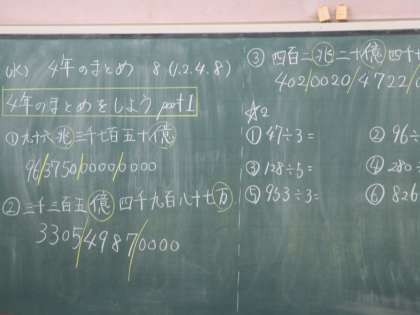 (水) 4年のまとめ 8 (1.2.4.8)
4年のまとめをしよう part1
①九十六兆三千七百五十億
96/3750/0000/0000
②三千三百五億四千九百八十七万
3305/4987/0000
③四百二兆二十億四千
402/0020/4722/0
☆2
①47÷3=
②96÷
③128÷5=
④280÷
⑤953÷3=
⑥826